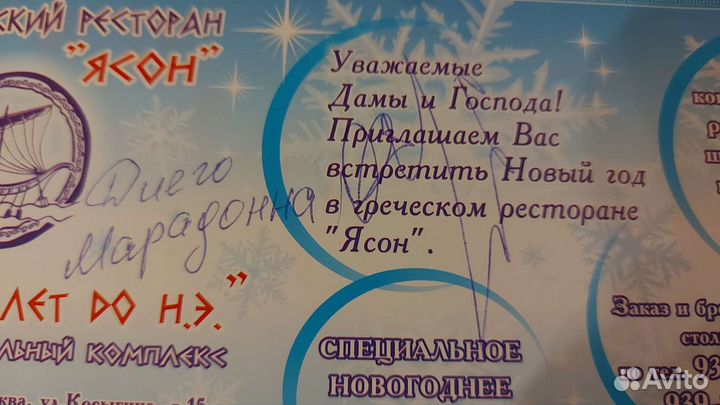 СКИЙ РЕСТОРАН
"ЯСОН"
Диего
Марадонна
ЛЕТ ДО Н.Э."
ЛЬНЫЙ КОМПЛЕКС
ква, ул.Косыгина, 15
Уважаемые
Дамы и Господа!
Приглашаем Вас
встретить Новый год
в греческом ресторане
"Ясон".
СПЕЦИАЛЬНОЕ
НОВОГОДНЕЕ
ко
Заказ и бр
стол
тел. 93
939
Avito